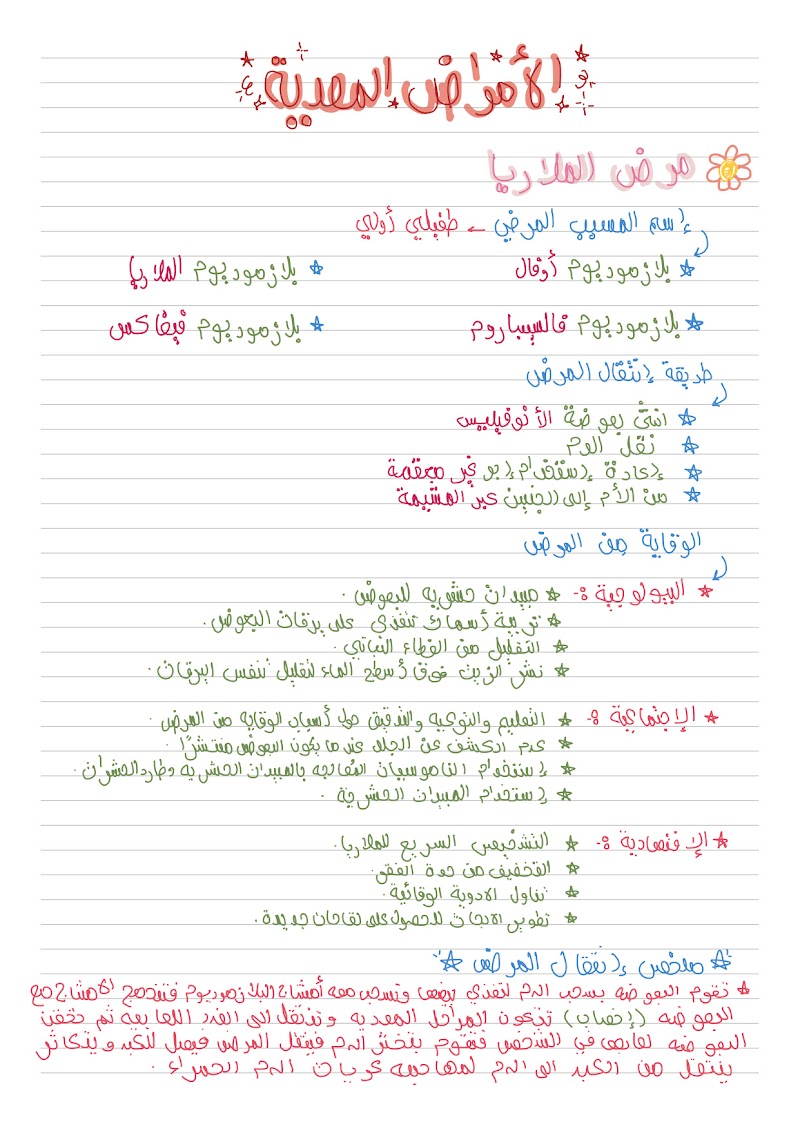 الأمراض المعدية
مرض الملاريا
إسم المسبب المرضي ← طفيلي أولي
★ بلازموديوم أوفال ★ بلازموديوم الملاريا
★ بلازموديوم فالسيباروم ★ بلازموديوم فيفاكس
طريقة إنتقال المرض
★ انثى بعوضة الأنوفيليس
★ نقل الدم
★ إعادة إستخدام إبر غير معقمة
★ من الأم إلى الجنين عبر المشيمة
الوقاية من المرض
★ البيولوجية :- ★ مبيدات حشريه للبعوض .
★ تربية أسماك تتغذى على يرقات البعوض .
★ التقليل من الغطاء النباتي .
★ نشر الزيت فوق أسطح الماء لتقليل تنفس اليرقات .
★ الإجتماعية :- ★ التعليم والتوعيه والتدقيق حول أسباب الوقايه من المرض .
★ عدم الكشف عن الجلد عندما يكون البعوض منتشرًا .
★ إستخدام الناموسيات المعالجه بالمبيدات الحشريه وطارد الحشرات .
★ إستخدام المبيدات الحشرية .
★ الإقتصادية :- ★ التشخيص السريع للملاريا .
★ التخفيف من حدة الفقر .
★ تناول الادوية الوقائية .
★ تطوير الابحاث للحصول على لقاحات جديدة .
★ ملخص إنتقال المرض ★
★ تقوم البعوضه بسحب الدم لتغذي بيضها وتسحب معه أمشاج البلازموديوم فتندمج الامشاج مع
البعوضه (إخصاب) تتكون المراحل المعديه وتنتقل الى الغدد اللعابيه ثم تحقن
البعوضه لعابها في الشخص فتقوم بتخثر الدم فينتقل المرض فيصل للكبد ويتكاثر
ينتقل من الكبد الى الدم لمهاجمه كريات الدم الحمراء .